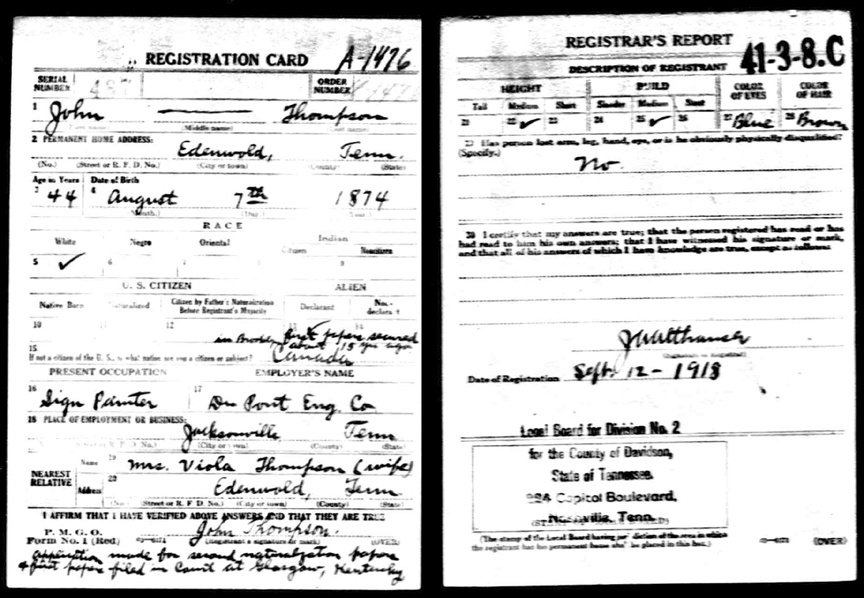 REGISTRATION CARD A-1476
SERIAL NUMBER
ORDER NUMBER
1 John Thompson
(Middle name)
2 PERMANENT HOME ADDRESS:
Edenwold, Tenn.
(No.) (Street or R. F. D. No.) (City or town) (County) (State)
Age in Years Date of Birth
3 44 4 August 7th 1874
(Month.) (Day.) (Year.)
RACE
White Negro Oriental Indian
Citizen Noncitizen
5 ✓ 6
U. S. CITIZEN ALIEN
Native Born Naturalized Citizen by Father's Naturalization Before Registrant's Majority Declarant Non-declarant
10 11 12 13 14
first papers secured
in about 15 yrs ago
15
If not a citizen of the U. S., of what nation are you a citizen or subject? Canada
PRESENT OCCUPATION EMPLOYER'S NAME
16 Sign Painter 17 Du Pont Eng. Co
18 PLACE OF EMPLOYMENT OR BUSINESS:
Jacksonville Tenn
R. F. D. No.) (City or town) (County) (State)
NEAREST RELATIVE
Name 19 Mrs. Viola Thompson (wife)
Address 20 Edenwold, Tenn
(No.) (Street or R. F. D. No.) (City or town) (County) (State)
I AFFIRM THAT I HAVE VERIFIED ABOVE ANSWERS AND THAT THEY ARE TRUE
P. M. G. O.
Form No. 1 (Red) John Thompson.
(Registrant's signature or mark) (OVER)
application made for second naturalization papers
& first papers filed in Court at Glasgow, Kentucky
REGISTRAR'S REPORT 41-3-8.C
DESCRIPTION OF REGISTRANT
HEIGHT BUILD COLOR OF EYES COLOR OF HAIR
Tall Medium Short Slender Medium Stout
21 22 ✓ 23 24 25 ✓ 26 27 Blue 28 Brown
29 Has person lost arm, leg, hand, eye, or is he obviously physically disqualified?
(Specify.) No.
30 I certify that my answers are true; that the person registered has read or has
had read to him his own answers; that I have witnessed his signature or mark,
and that all of his answers of which I have knowledge are true, except as follows:
(Signature of Registrar)
Date of Registration Sept. 12 - 1918
Local Board for Division No. 2
for the County of Davidson,
State of Tennessee.
Capitol Boulevard,
Nashville, Tenn.
(The stamp of the Local Board having jurisdiction of the area in which
the registrant has his permanent home shall be placed in this box.)
(OVER)